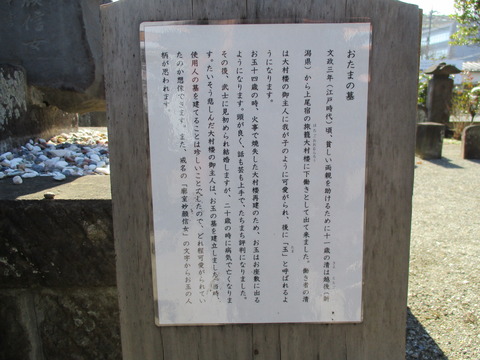 おたまの墓
文政三年（江戸時代）頃、貧しい両親を助けるために十一歳の清は越後（新
潟県）から上尾宿の旅籠大村楼に下働きとして出て来ました。働き者の清
は大村楼の御主人に我が子のように可愛がられ、後に「玉」と呼ばれるよ
うになります。
お玉十四歳の時、火事で焼失した大村楼再建のため、お玉はお座敷に出る
ようになります。頭が良く、話も芸も上手で、たちまち評判になりました。
その後、武士に見初められ結婚しますが、二十歳の時に病気で亡くなりま
す。たいそう悲しんだ大村楼の御主人は、お玉の墓を建立しました。当時、
使用人の墓を建てることは珍しいこと
でしたので、どれ程可愛がられてい
たのか想像できます。また、戒名の「廓室妙顔信女」の文字からお玉の人
柄が思われます。
信女